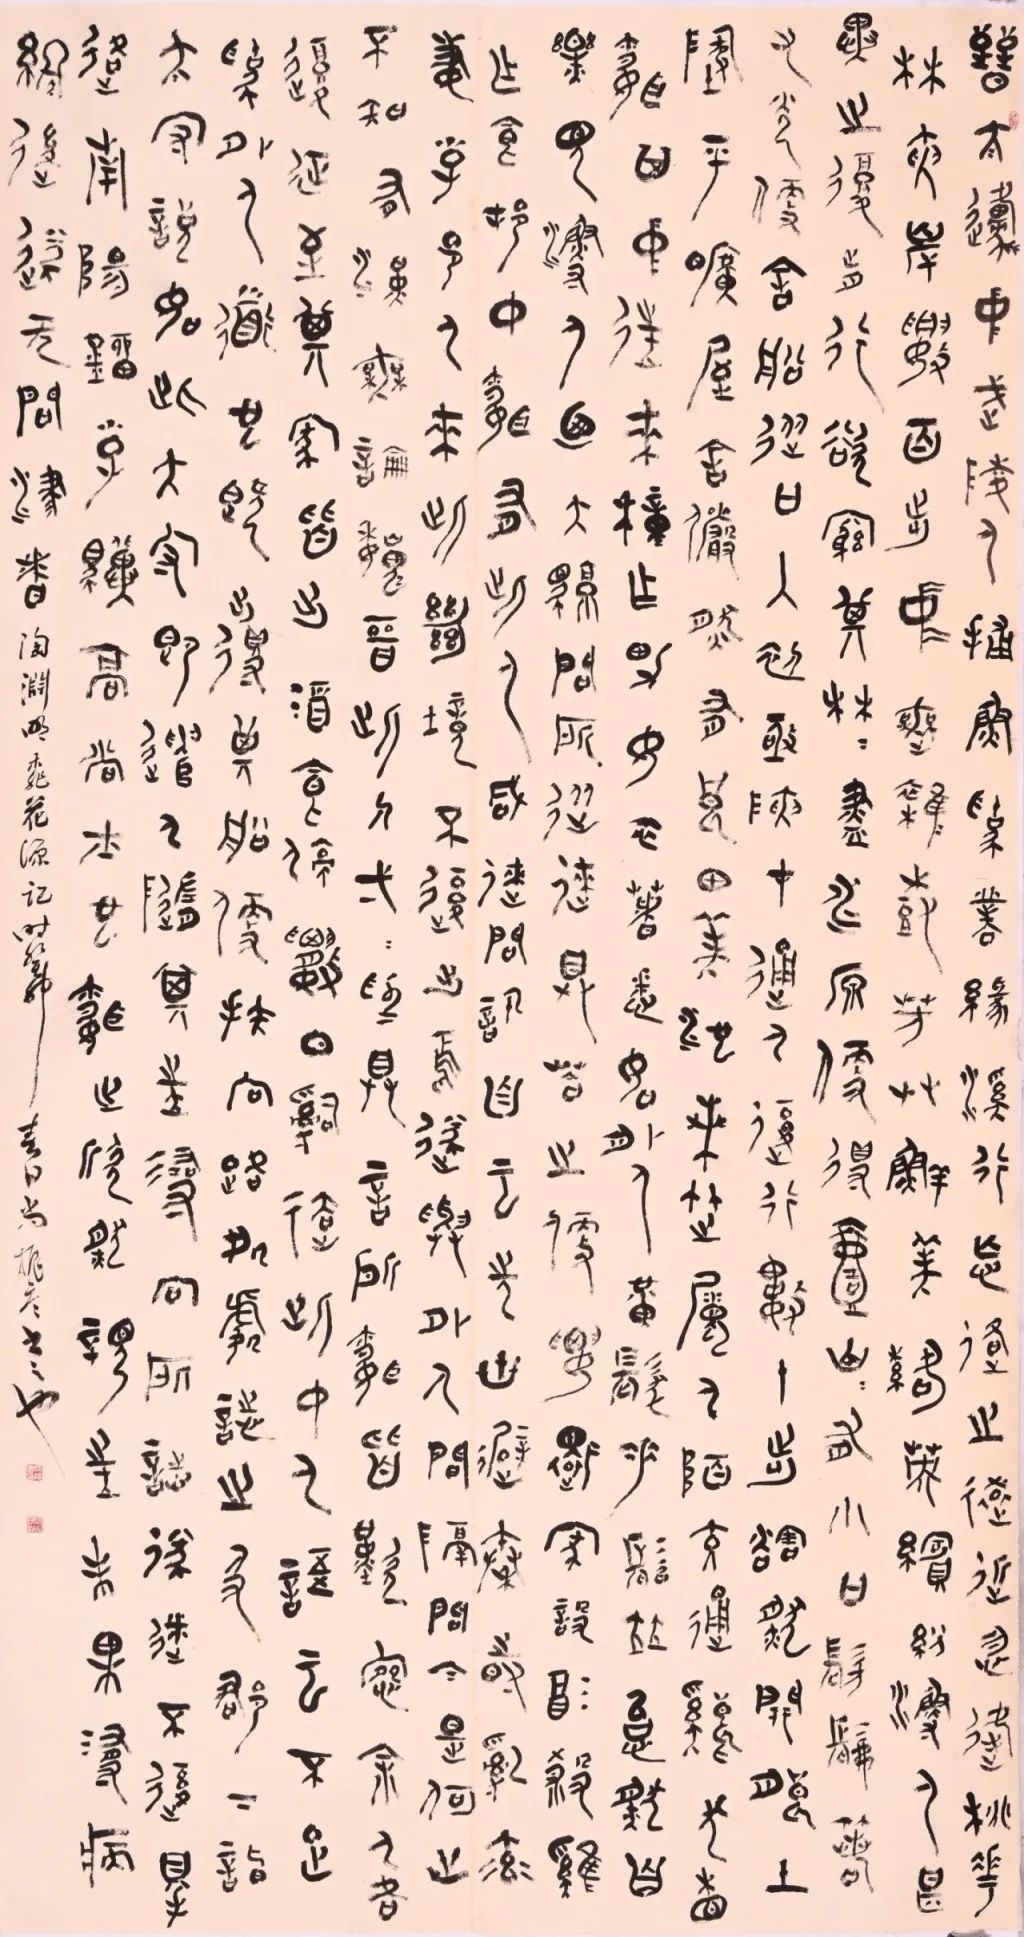 晉太邍中武陵人捕魚為業緣溪行忘路之遠近忽逢桃華
林夾岸數百步中無雜樹芳艸鮮美落英繽紛漁人甚
異之復前行欲窮其林=盡水原便得一山=有小口髣髴若
有光便舍船從口入初極陜中通人復行數十步豁然開朗土
地平曠屋舍儼然有良田美池桑竹之屬阡陌交通雞犬相
聞其中往來種作男女衣著悉如外人黃髮垂髫並怡然自
樂見漁人乃大驚問所從來具答之便要還家設酒殺雞
作食村中聞有此人咸來問訊自云先世避秦時亂率
妻子邑人來此絕境不復出焉遂與外人間隔問今是何世
不知有漢無論魏晉此人一=為具言所聞皆歎惋余人各
復延至其家皆出酒食停數日辭去此中人語云不足
為外人道也既出得其船便扶向路處處誌之及郡下詣
太守說如此太守即遣人隨其往尋向所誌遂迷不復得
路南陽劉子驥高尚士也聞之欣然規往未果尋病
終後遂無問津者 陶淵明桃花源記 時癸卯春日尚書之也